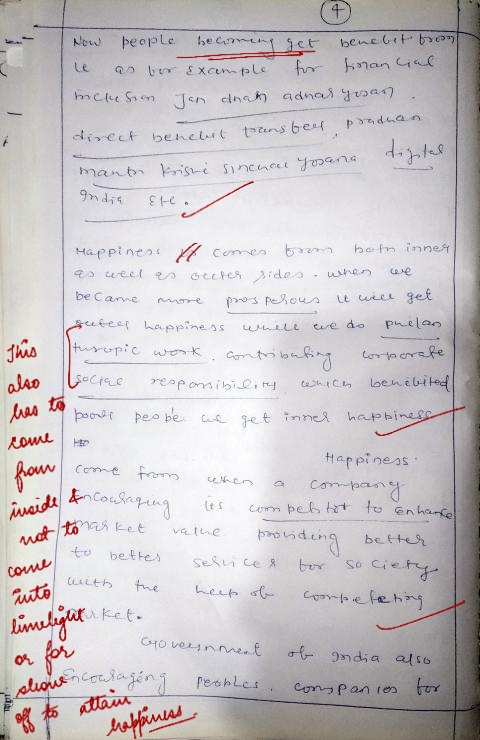 4
Now people becoming get benebit from
it as bor Example for financial
Inclusion Jan dhan adhar yojan.
direct benebit transfeer, pradhan
mantri krishi sinchai yojana digital
India Etc.
Happiness comes from both inner
as well as outer sides. when we
became more prosperous it will get
outer happiness while we do philan
turopic work. contributing corporate
social responsibility which benebited
poors people we get inner happiness
Happiness.
come from when a company
encouraging its competitor to enhance
market value providing better
to better services for society
with the help of competeting
market.
Government of India also
Encouraging peoples. companies for
This
also
has to
come
from
inside &
not to
come
into
limelight
or for
show
off to attain
happiness